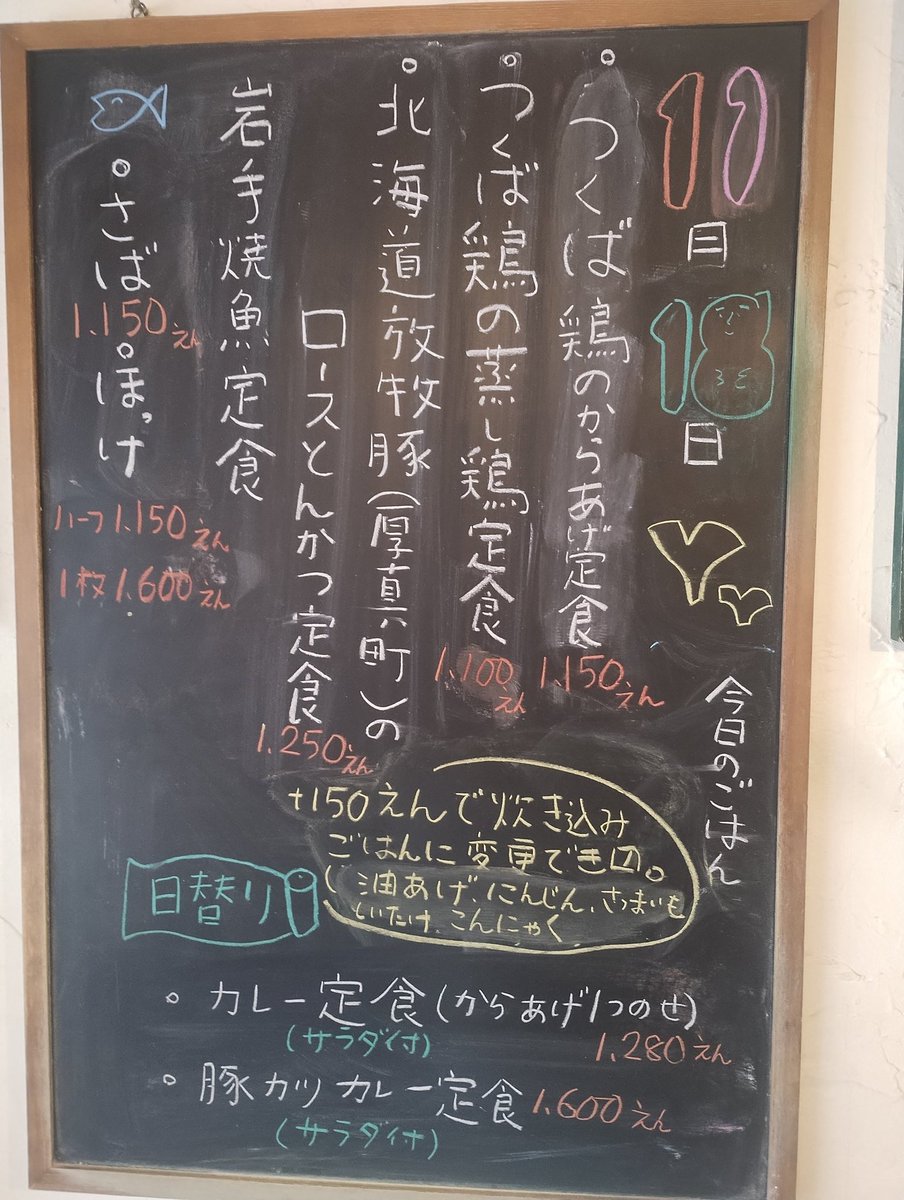 11月18日
今日のごはん
○つくば鶏のからあげ定食
1.150えん
○つくば鶏の蒸し鶏定食
1.100えん
○北海道放牧豚(厚真町)の
ロースとんかつ定食
1.250えん
岩手焼魚定食
○さば
1.150えん
○ほっけ
ハーフ1.150えん
1枚1.600えん
+150えんで炊き込み
ごはんに変更でき〼。
(油あげ、にんじん、さつまいも
しいたけ、こんにゃく
日替り
○カレー定食(からあげ1つのせ)
(サラダ付)
1.280えん
○豚カツカレー定食1.600えん
(サラダ付)